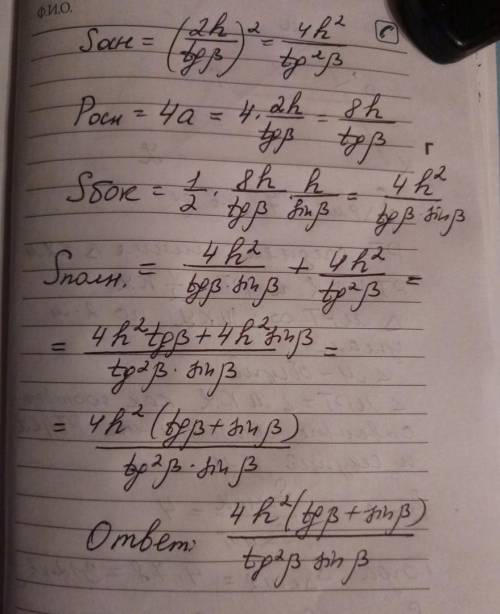 Ф.И.О.
Sосн = (2h/tgβ)² = 4h²/tg²β
Pосн = 4a = 4·2h/tgβ = 8h/tgβ
Sбок = 1/2 · 8h/tgβ · h/sinβ = 4h²/tgβ sinβ
Sполн. = 4h²/tgβ·sinβ + 4h²/tg²β =
= 4h²tgβ+4h²sinβ/tg²β·sinβ =
= 4h²(tgβ+sinβ)/tg²β·sinβ
Ответ: 4h²(tgβ+sinβ)/tg²β sinβ